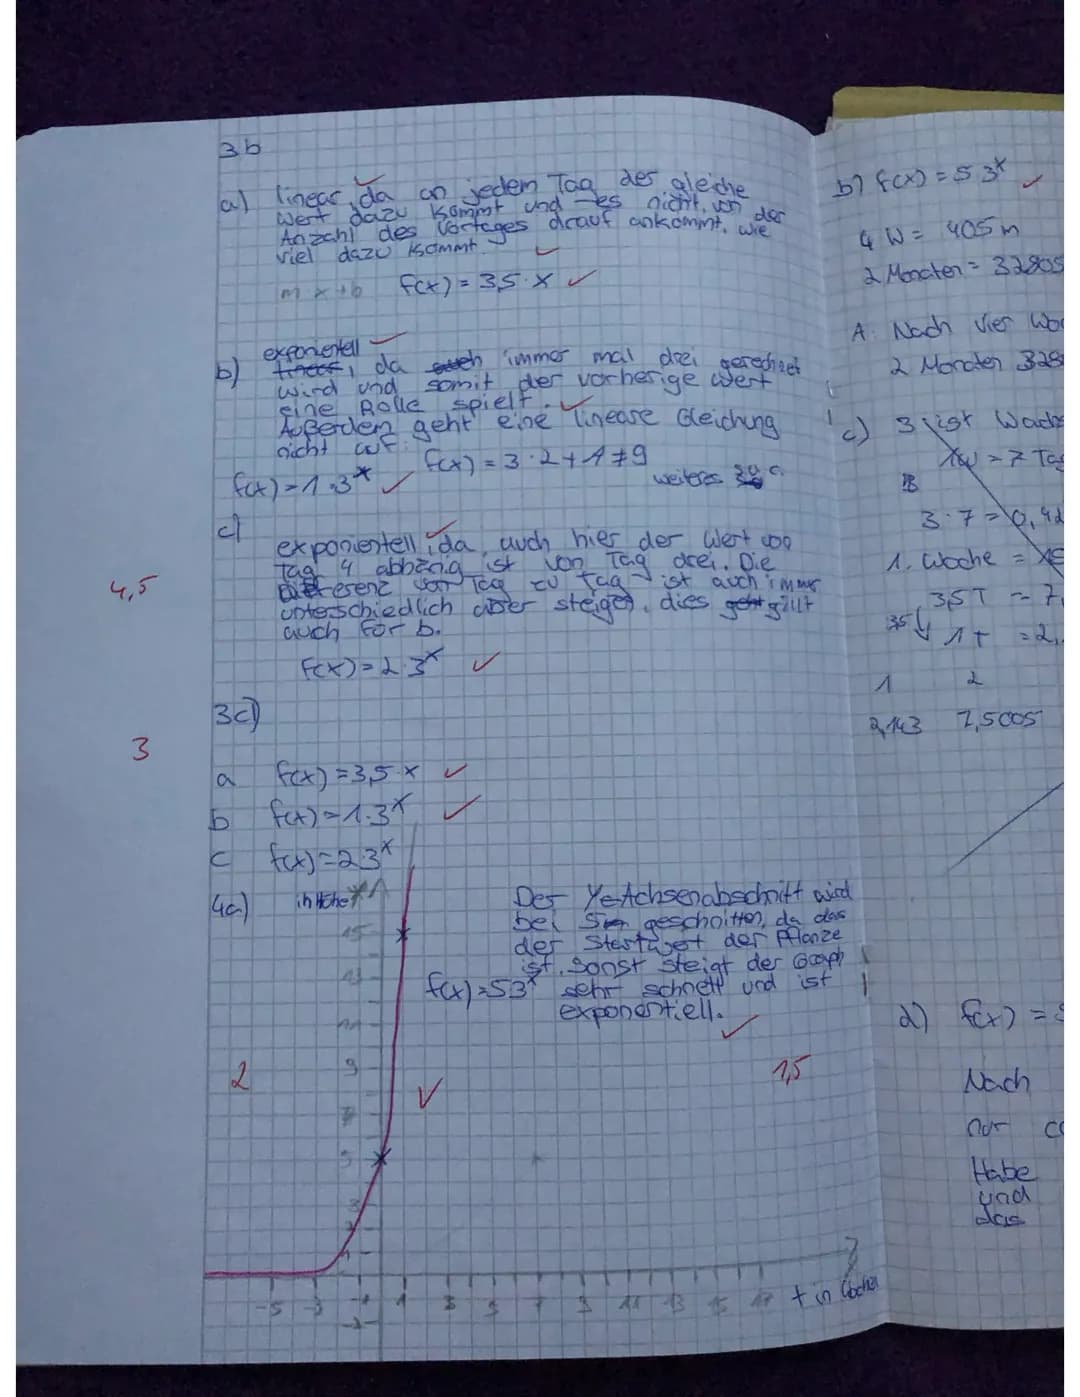 3b
a) linear, da an jedem Tag der gleiche
Wert dazu kommt und es nicht, von der
Anzahl des Vortages drauf ankommt, wie
viel dazu kommt.
m x + b f(x) = 3,5 · x
exponentell
b) linear, da auch immer mal drei gerechnet
wird und somit der vorherige Wert
eine Rolle spielt.
Außerdem geht eine lineare Gleichung
nicht auf. f(x) = 3 · 2 + 1 ≠ 9
f(x) = 1 · 3^x weiteres
c)
exponentell, da auch hier der Wert von
Tag 4 abhänig ist von Tag drei. Die
Differenz von Tag zu Tag ist auch immer
unterschiedlich aber steigen, dies geht gillt
auch för b.
4,5
f(x) = 2 · 3^x
3c)
3
a f(x) = 3,5 · x
b f(x) = 1 · 3^x
c f(x) = 2 3^x
4a) in Höhe
Der Y-Achsenabschnitt wird
bei 5 geschnitten, da das
der Startwert der Pflanze
ist. Sonst steigt der Graph
f(x) = 5 3^x sehr schnell und ist
exponentiell.
2
1,5
15
13
11
9
7
5
3
2
1
-5 -3 -1 1 3 5 7 9 11 13 15 17 t in Wochen
-2
b) f(x) = 5 3^x
4 W = 405 m
2 Monaten = 32805
A: Nach vier Wo
2 Monaten 328
c) 3 ist Wachs
1W = 7 Tag
3 · 7 = 0,42
1. Woche =
3,5 T = 7,
3,5 ↓ 1 T = 2,
1 2
2,143 7,5005
d) f(x) =
Nach
nur
Habe
und
das